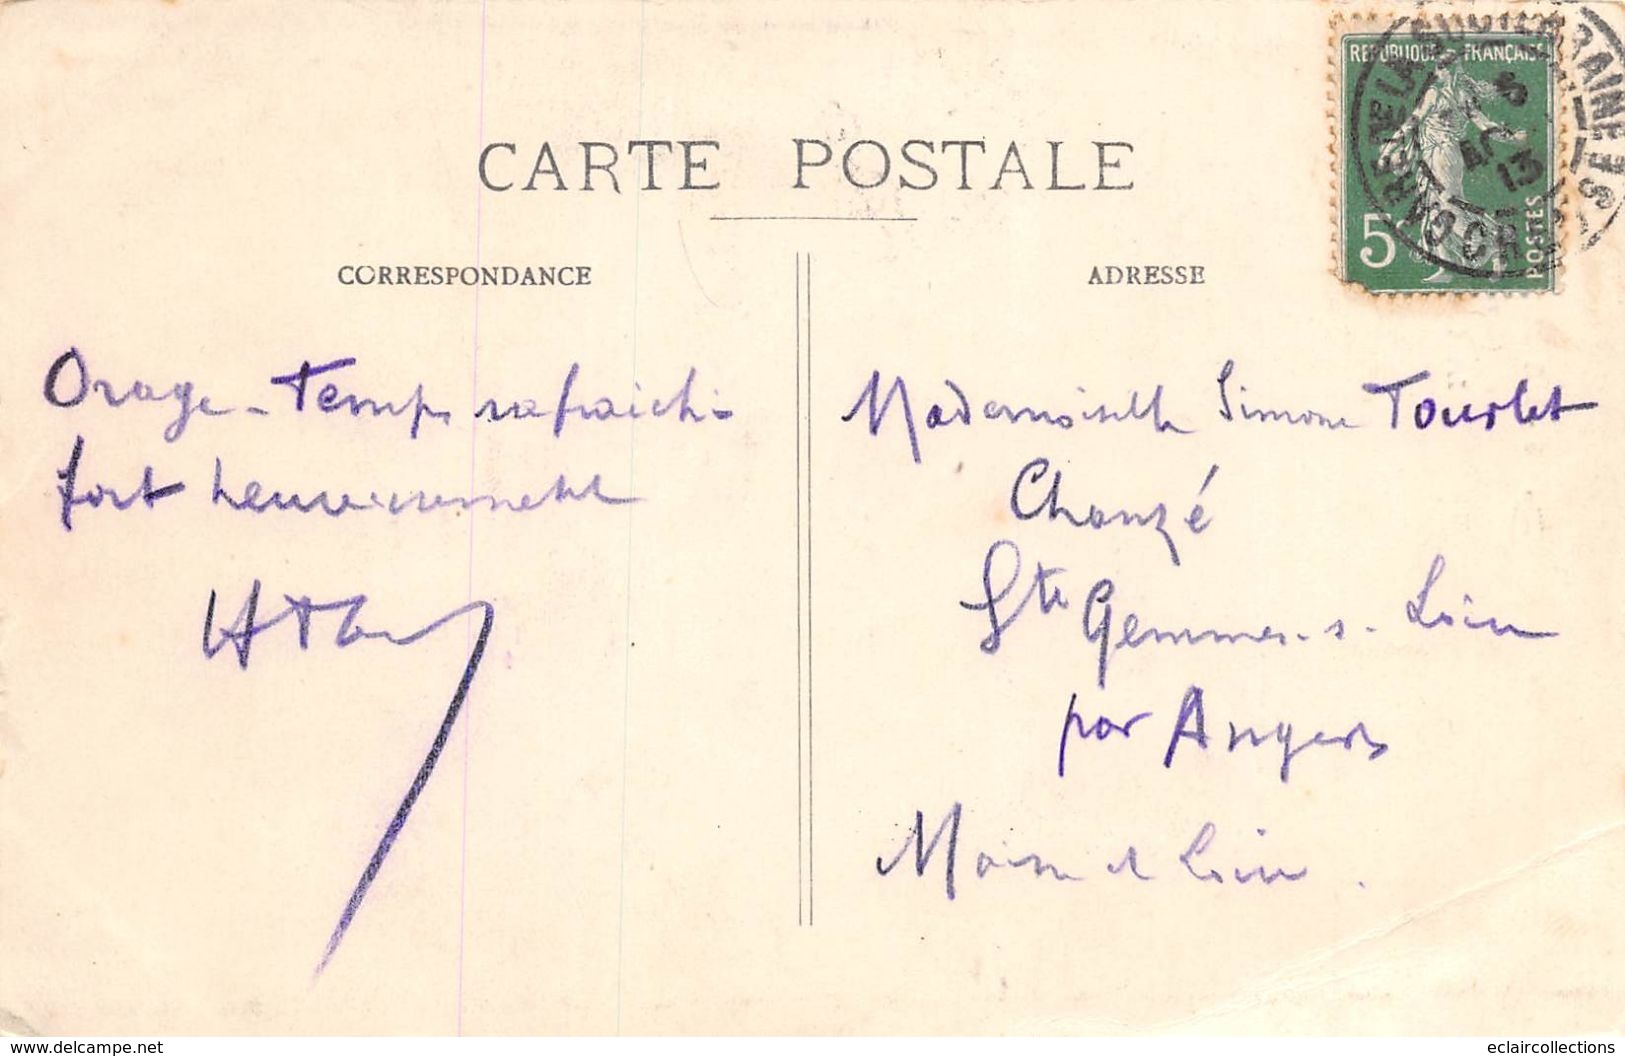 CARTE POSTALE
CORRESPONDANCE
ADRESSE
REPUBLIQUE FRANÇAISE
5
POSTES
GARE DE LA SOUTERRAINE
13
Orage - Temps rafraichi
fort heureusement
Mademoiselle Simone Tourlet
Chanzé
Ste Gemmes-s-Loire
par Angers
Maine et Loire.
www.delcampe.net
eclaircollections